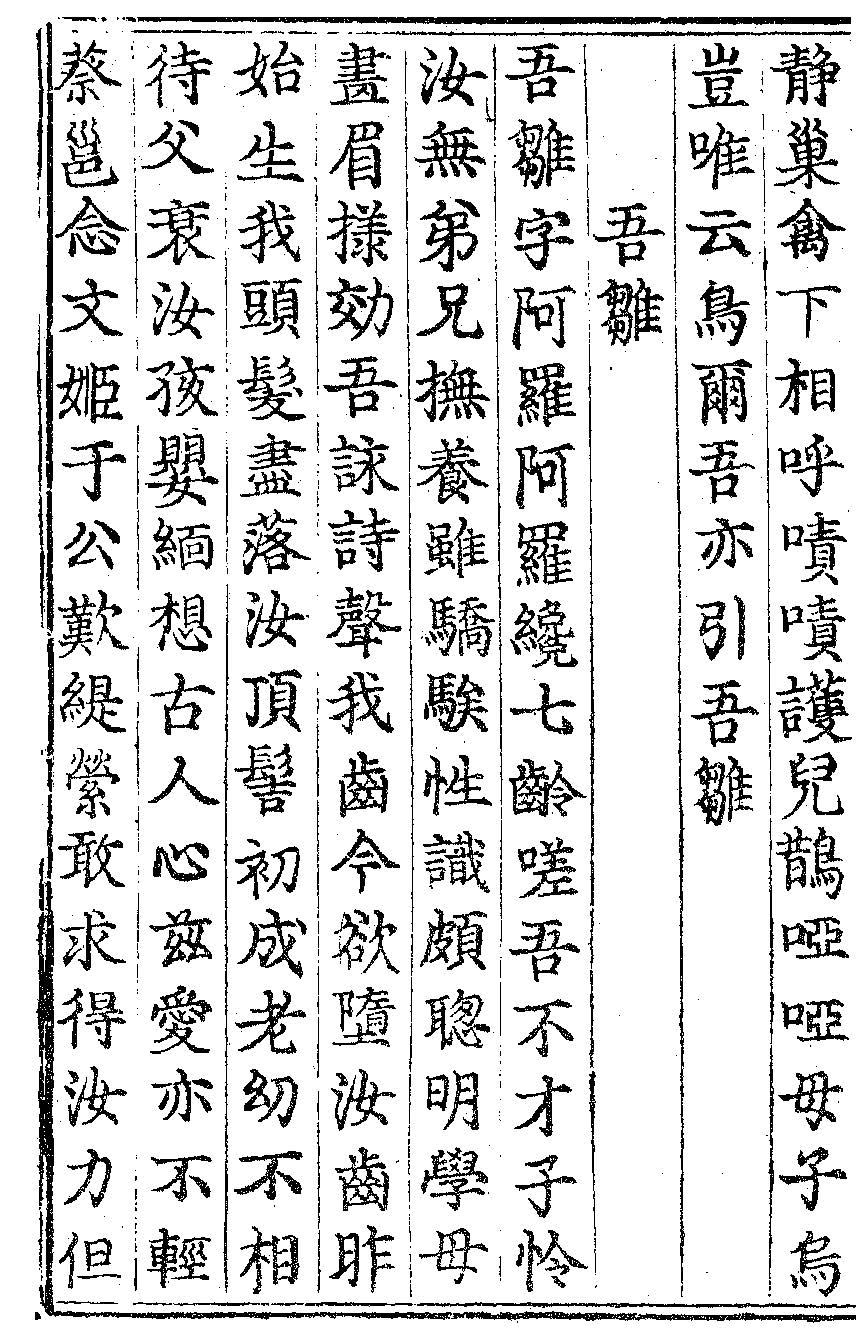 静巢禽下相呼嘖嘖護兒鵲啞啞母子烏
豈唯云鳥爾吾亦引吾雛
吾雛
吾雛字阿羅阿羅纔七齡嗟吾不才子怜
汝無弟兄撫養雖驕騃性識頗聰明學母
畫眉樣効吾詠詩聲我齒今欲墮汝齒昨
始生我頭髮盡落汝頂髻初成老幼不相
待父衰汝孩嬰緬想古人心兹愛亦不輕
蔡邕念文姬于公歎緹縈敢求得汝力但